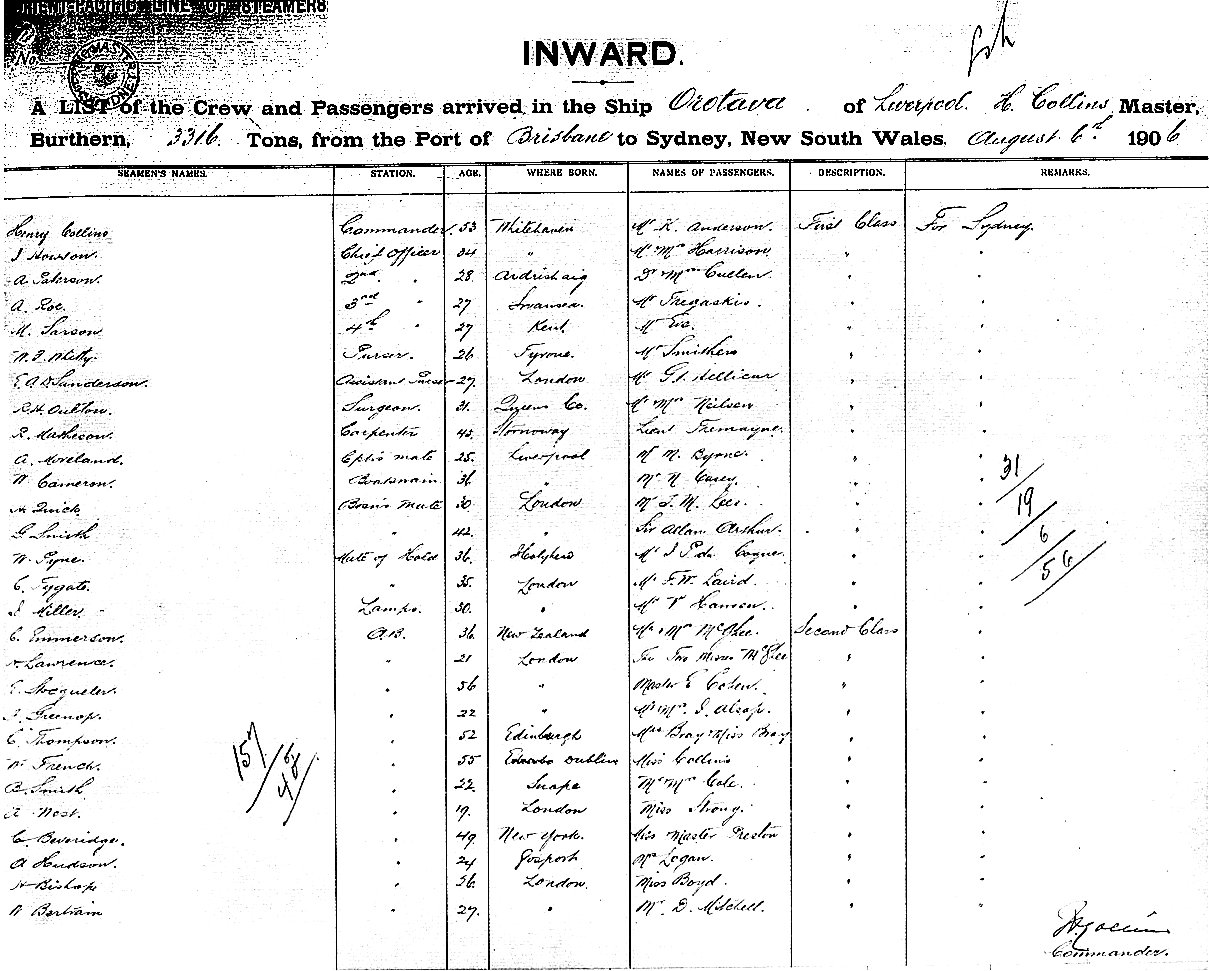 ORIENT-PACIFIC LINE OF STEAMERS
No.
INWARD.
A LIST of the Crew and Passengers arrived in the Ship Orotava of Liverpool. H. Collins Master,
Burthern, 3316. Tons, from the Port of Brisbane to Sydney, New South Wales. August 6th 1906
SEAMEN'S NAMES. STATION. AGE. WHERE BORN. NAMES OF PASSENGERS. DESCRIPTION. REMARKS.
Henry Collins Commander. 53 Whitehaven Mr K. Anderson. First Class For Sydney.
J Howson. Chief Officer 34 " Mr Mrs Harrison. " "
A. Paterson. 2nd " 28. Ardrishaig Dr Mrs Cullen. " "
A. Roe. 3rd " 27 Swansea. Mr Tregaskis. " "
M. Sarson. 4th " 27 Kent. Mr " "
Purser. 26 Tyrone. Mr Smithers " "
Sanderson. Assistant Purser 27. London Mr " "
R.H. Oulton. Surgeon. 31. Queens Co. Mr Mrs Neilsen " "
R. Matheson. Carpenter 45. Stornoway Lieut Tremayne. " "
A. Moreland. Cptrs mate 25. Liverpool Mr M. Byrne. " "
W. Cameron. Boatswain. 36 " Mr N. Casey. " " 31
Quick. Bosn's Mate 30. London Mr J. M. Lees. " " 19
G Smith " 42. " Sir Allan Arthur. " " 6
W. Pyne. Mate of Hold 36. Holyhead Mr " " 56
C. Tygate. " 35. London Mr F. W. Laird. " "
J Miller. Lamps. 30. " Mr V Hansen. " "
C. Emmerson. A.B. 36 New Zealand Mr & Mrs McGhee. Second Class "
Lawrence. " 21 London The Two Misses McGhee " "
E. Stocqueler. " 56 " Master E Cohen. " "
J. Greenop. " 22 " Mr Mrs J. Alsop. " "
C. Thompson. " 52 Edinburgh Mrs Bray Miss Bray " "
157
W. French. " 55 Dublin Miss Collins " "
48
B. Smith " 22 Snape Mr Mrs Cole. " "
A. West. " 19. London Miss Strong. " "
C. Beveridge. " 49. New York. Miss Master Preston " "
A Hudson. " 24 Gosport Mrs Logan. " "
H Bishop " 36. London. Miss Boyd. " "
W Bertram " 27. " Mr D. Mitchell. " "
H. Collins
Commander.